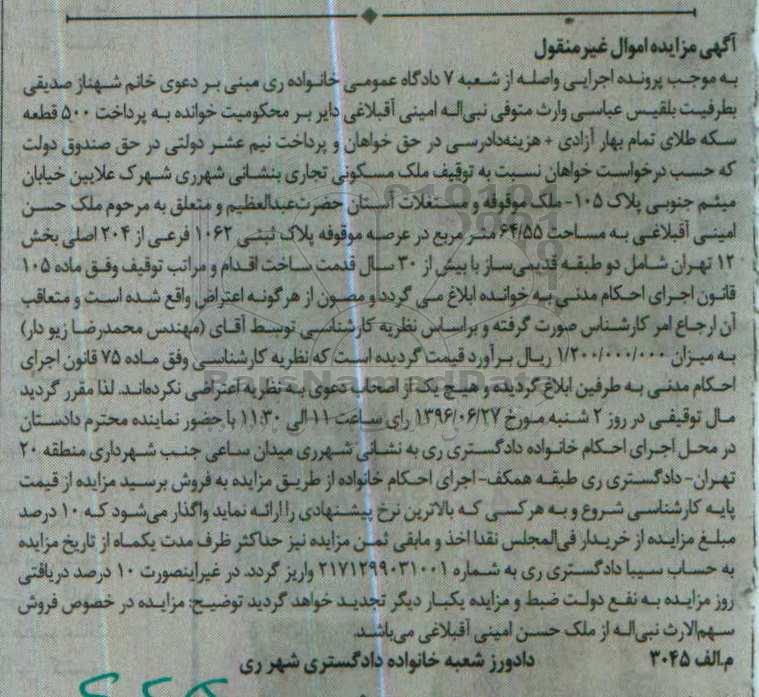 آگهی مزایده اموال غیرمنقول
به موجب پرونده اجرایی واصله از شعبه ۷ دادگاه عمومی خانواده ری مبنی بر دعوی خانم شهناز صدیقی
بطرفیت بلقیس عباسی وارث متوفی نبی‌اله امینی آقبلاغی دایر بر محکومیت خوانده به پرداخت ۵۰۰ قطعه
سکه طلای تمام بهار آزادی + هزینه‌دادرسی در حق خواهان و پرداخت نیم عشر دولتی در حق صندوق دولت
که حسب درخواست خواهان نسبت به توقیف ملک مسکونی تجاری بنشانی شهرری شهرک علایین خیابان
میثم جنوبی پلاک ۱۰۵- ملک موقوفه و مستغلات آستان حضرت‌عبدالعظیم و متعلق به مرحوم ملک حسن
امینی آقبلاغی به مساحت ۶۴/۵۵ متر مربع در عرصه موقوفه پلاک ثبتی ۱۰۶۲ فرعی از ۲۰۴ اصلی بخش
۱۲ تهران شامل دو طبقه قدیمی‌ساز با بیش از ۳۰ سال قدمت ساخت اقدام و مراتب توقیف وفق ماده ۱۰۵
قانون اجرای احکام مدنی به خوانده ابلاغ می گردد و مصون از هرگونه اعتراض واقع شده است و متعاقب
آن ارجاع امر کارشناس صورت گرفته و براساس نظریه کارشناسی توسط آقای (مهندس محمدرضا زیو دار)
به میزان ۱/۲۰۰/۰۰۰/۰۰۰ ریال برآورد قیمت گردیده است که نظریه کارشناسی وفق ماده ۷۵ قانون اجرای
احکام مدنی به طرفین ابلاغ گردیده و هیچ یک از اصحاب دعوی به نظریه اعتراضی نکرده‌اند. لذا مقرر گردید
مال توقیفی در روز ۲ شنبه مورخ ۱۳۹۶/۰۶/۲۷ رای ساعت ۱۱ الی ۱۱:۳۰ با حضور نماینده محترم دادستان
در محل اجرای احکام خانواده دادگستری ری به نشانی شهرری میدان ساعی جنب شهرداری منطقه ۲۰
تهران- دادگستری ری طبقه همکف- اجرای احکام خانواده از طریق مزایده به فروش برسید مزایده از قیمت
پایه کارشناسی شروع و به هرکسی که بالاترین نرخ پیشنهادی را ارائه نماید واگذار می‌شود که ۱۰ درصد
مبلغ مزایده از خریدار فی‌المجلس نقدا اخذ و مابقی ثمن مزایده نیز حداکثر ظرف مدت یکماه از تاریخ مزایده
به حساب سیبا دادگستری ری به شماره ۲۱۷۱۲۹۹۰۳۱۰۰۱ واریز گردد. در غیراینصورت ۱۰ درصد دریافتی
روز مزایده به نفع دولت ضبط و مزایده یکبار دیگر تجدید خواهد گردید توضیح: مزایده در خصوص فروش
سهم‌الارث نبی‌اله از ملک حسن امینی آقبلاغی می‌باشد.
م.الف ۳۰۴۵ دادورز شعبه خانواده دادگستری شهر ری